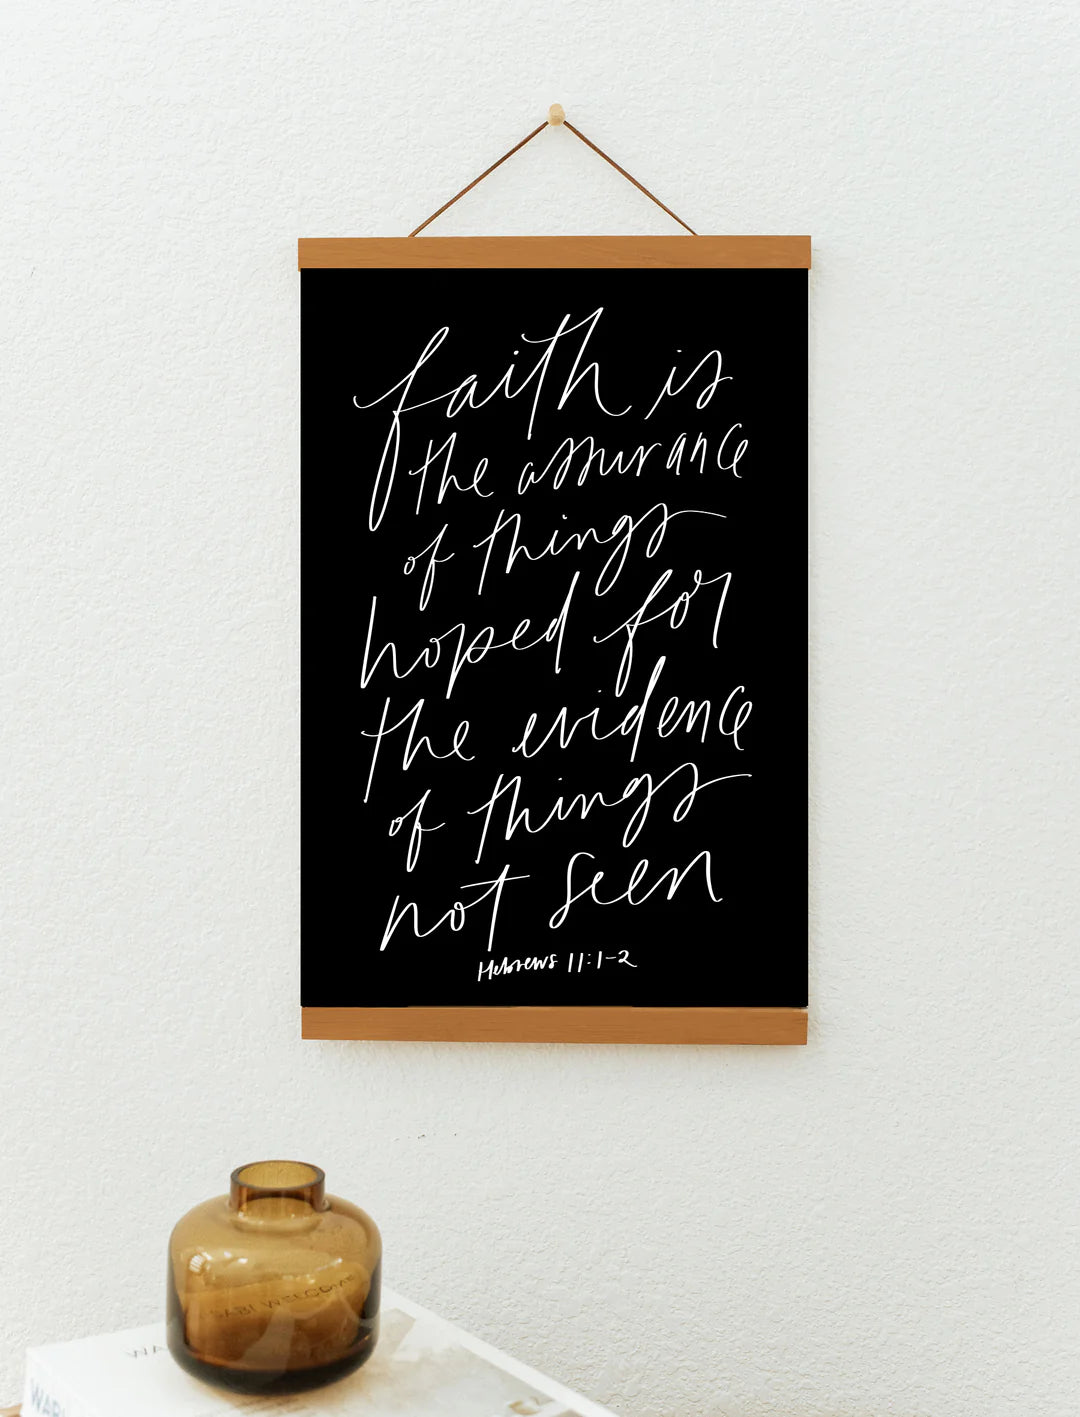 faith is
the assurance
of things
hoped for
the evidence
of things
not seen
Hebrews 11:1-2
WELCOME
WA